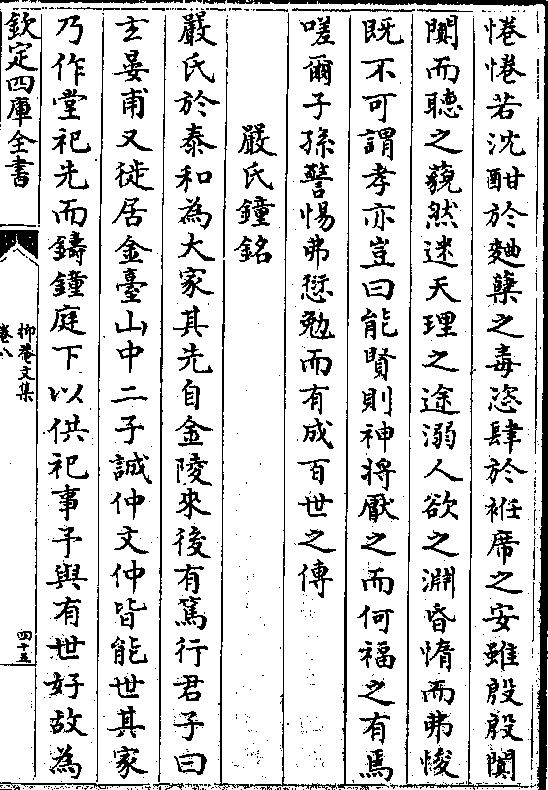 惓惓若沈酣於麯糵之毒恣肆於袵席之安雖殷殷闐
闐而聽之藐然迷天理之途溺人欲之淵昏惰而弗悛
既不可謂孝亦豈曰能賢則神將厭之而何福之有焉
嗟爾子孫警惕弗愆勉而有成百世之傳
嚴氏鐘銘
嚴氏於泰和為大家其先自金陵來後有篤行君子曰
士晏甫又徙居金臺山中二子誠仲文仲皆能世其家
乃作堂祀先而鑄鐘庭下以供祀事予與有世好故為
欽定四庫全書
抑菴文集
卷八
四十五